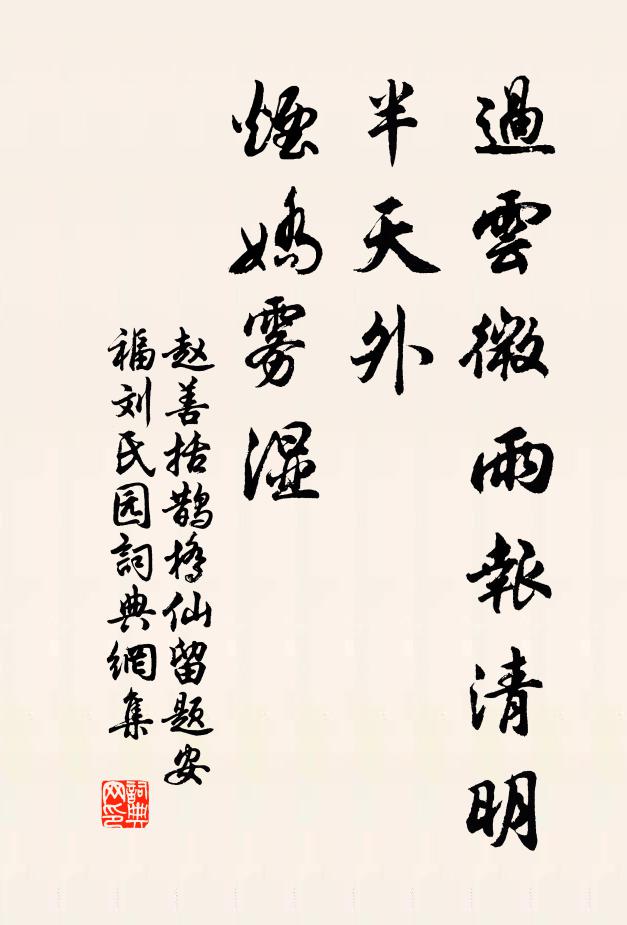 過雲微雨報清明
半天外
煙嬌雾湿
赵善括鹊橋仙留题安
福刘氏园詞典網集
詞典
网印